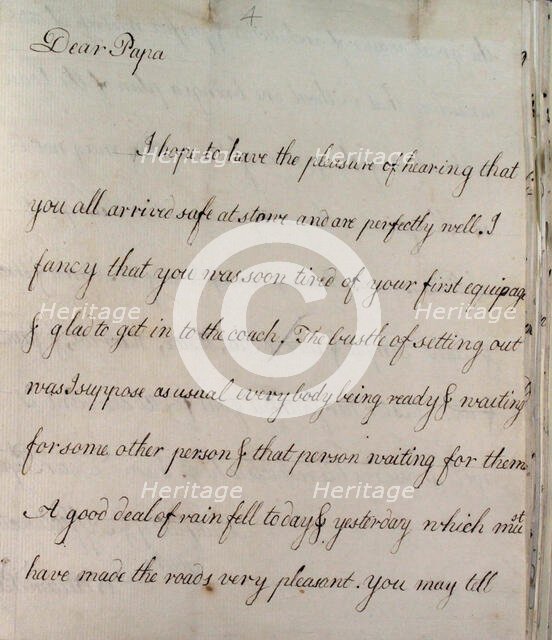 4
Dear Papa
I hope to have the pleasure of hearing that
you all arrived safe at stowe and are perfectly well. I
fancy that you was soon tired of your first equipage
& glad to get in to the coach. The bustle of setting out
was I suppose as usual every body being ready & waiting
for some other person & that person waiting for them
A good deal of rain fell to day & yesterday which must
have made the roads very pleasant. you may tell
Heritage Heritage Heritage
Heritage Heritage Heritage
Heritage Heritage Heritage
Heritage Heritage Heritage